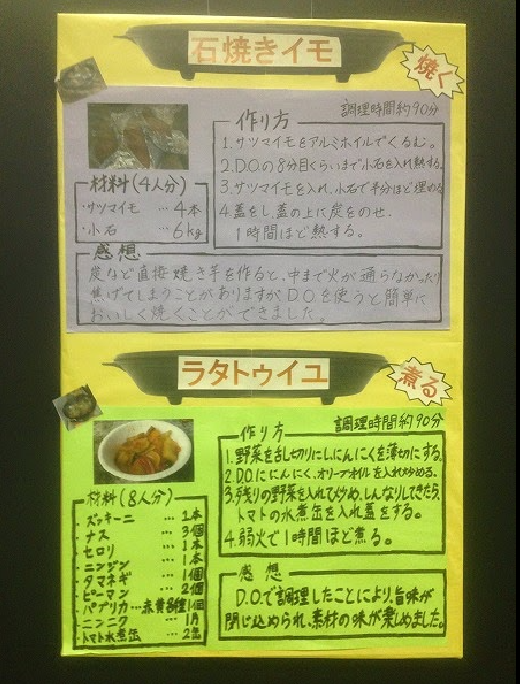 石焼きイモ
焼く
調理時間約90分
作り方
1.サツマイモをアルミホイルでくるむ。
2.D.Oの8分目くらいまで小石を入れ熱する。
3.サツマイモを入れ、小石で半分ほど埋める
4.蓋をし、蓋の上に炭をのせ、
1時間ほど熱する。
材料(4人分)
・サツマイモ … 4本
・小石 … 6kg
感想
炭など直接焼き芋を作ると、中まで火が通らなかったり
焦げてしまうことがありますが D.Oを使うと簡単に
おいしく焼くことができました。
ラタトゥイユ
煮る
調理時間約90分
作り方
1.野菜を乱切りにし、にんにくを薄切にする。
2.D.Oににんにく、オリーブオイルを入れ炒める。
3.残りの野菜を入れて炒め、しんなりしてきたら、
トマトの水煮缶を入れ蓋をする。
4.弱火で1時間ほど煮る。
材料(8人分)
・ズッキーニ … 1本
・ナス … 3個
・セロリ … 1本
・ニンジン … 1本
・タマネギ … 1個
・ピーマン … 2個
・パプリカ…赤黄各種1個
・ニンニク … 1片
・トマト水煮缶 … 2缶
感想
D.O.で調理したことにより、旨味が
閉じ込められ、素材の味が楽しめました。